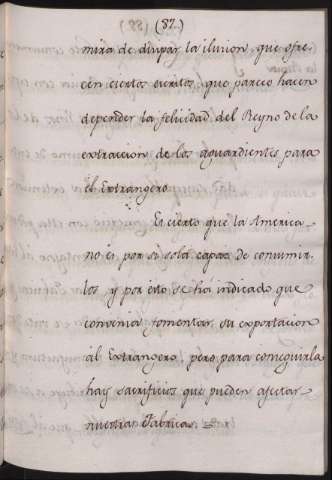 (87.)
mira de disipar la ilusion, que ofre-
cen ciertos escritos, que parece hacen
depender la felicidad del Reyno de la
extraccion de los aguardientes para
el Extrangero.
Es cierto que la America
no es por si sola capaz de consumir-
los y por esto se há indicado que
convenia fomentar su exportacion
al Extrangero, pero para conseguirla
hay sacrificios que pueden afectar
nuestras Fabricas.